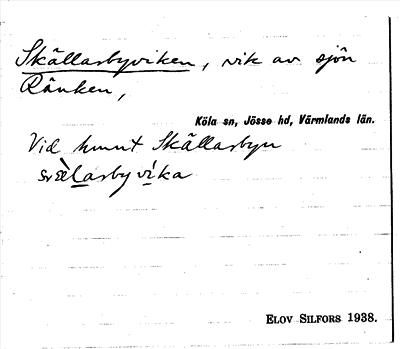 Skällarbyviken, vik av sjön
Ränken,
Köla sn, Jösse hd, Värmlands län.
Vid hmnt Skällarbyn
Elov Silfors 1938.